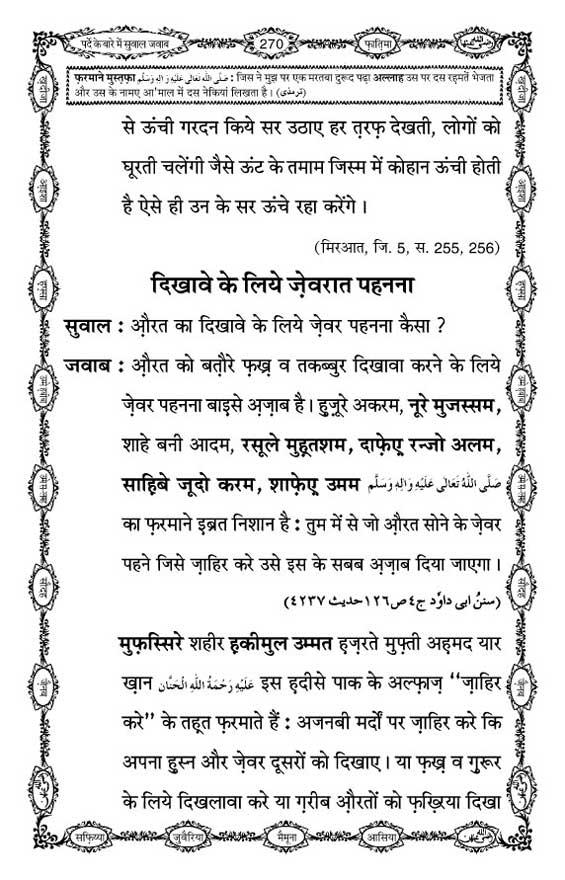 पर्दे के बारे में सुवाल जवाब
270
फ़ातिमा
फ़रमाने मुस्तफ़ा صَلَّى اللّٰهُ تَعَالٰى عَلَيْهِ وَاٰلِهٖ وَسَلَّم : जिस ने मुझ पर एक मरतबा दुरूद पढ़ा अल्लाह उस पर दस रहमतें भेजता
और उस के नामए आ'माल में दस नेकियां लिखता है। (ترمذی)
से ऊंची गरदन किये सर उठाए हर त़रफ़ देखती, लोगों को
घूरती चलेंगी जैसे ऊंट के तमाम जिस्म में कोहान ऊंची होती
है ऐसे ही उन के सर ऊंचे रहा करेंगे ।
(मिरआत, जि. 5, स. 255, 256)
दिखावे के लिये ज़ेवरात पहनना
सुवाल : औ़रत का दिखावे के लिये ज़ेवर पहनना कैसा ?
जवाब : औ़रत को बत़ौरे फ़ख़्र व तकब्बुर दिखावा करने के लिये
ज़ेवर पहनना बाइसे अ़ज़ाब है। हुज़ूरे अकरम, नूरे मुजस्सम,
शाहे बनी आदम, रसूले मुह़्तशम, दाफ़ेए़ रन्जो अलम,
साह़िबे जूदो करम, शाफ़ेए़ उमम صَلَّى اللّٰهُ تَعَالٰى عَلَيْهِ وَاٰلِهٖ وَسَلَّم
का फ़रमाने इ़ब्रत निशान है : तुम में से जो औ़रत सोने के ज़ेवर
पहने जिसे ज़ाहिर करे उसे इस के सबब अ़ज़ाब दिया जाएगा ।
(سننُ ابی داوٗد ج٤ ص١٢٦ حديث ٤٢٣٧)
मुफ़स्सिरे शहीर ह़कीमुल उम्मत ह़ज़रते मुफ़्ती अह़मद यार
ख़ान عَلَيْهِ رَحْمَةُ اللّٰهِ الْحَنَّان इस ह़दीसे पाक के अल्फ़ाज़ “ज़ाहिर
करे” के तह़्त फ़रमाते हैं : अजनबी मर्दों पर ज़ाहिर करे कि
अपना हुस्न और ज़ेवर दूसरों को दिखाए। या फ़ख़्र व ग़ुरूर
के लिये दिखलावा करे या ग़रीब औ़रतों को फ़ख़्रिया दिखा
सफ़िय्या
जुवैरिया
मैमूना
आसिया